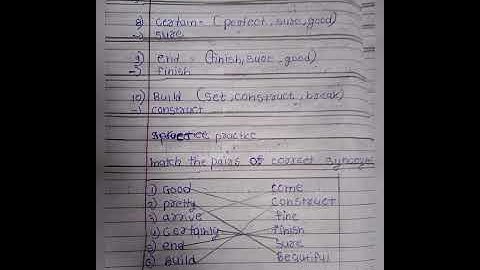 8) certain = (perfect, sure, good)
→ sure
9) end = (finish, sure, good)
→ finish
10) Build (set, construct, break)
→ construct
practice
match the pairs of correct synonyms
1) Good come
2) pretty construct
3) arrive fine
4) certainly finish
5) end sure
6) Build Beautiful